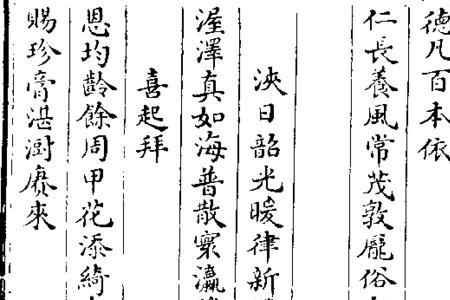 德凡百本依
仁長養風常茂敦龐俗
浹日韶光暖律新
渥澤真如海普散寰瀛
喜起拜
恩均齡餘周甲花添綺
賜珍膏湛廚廩來